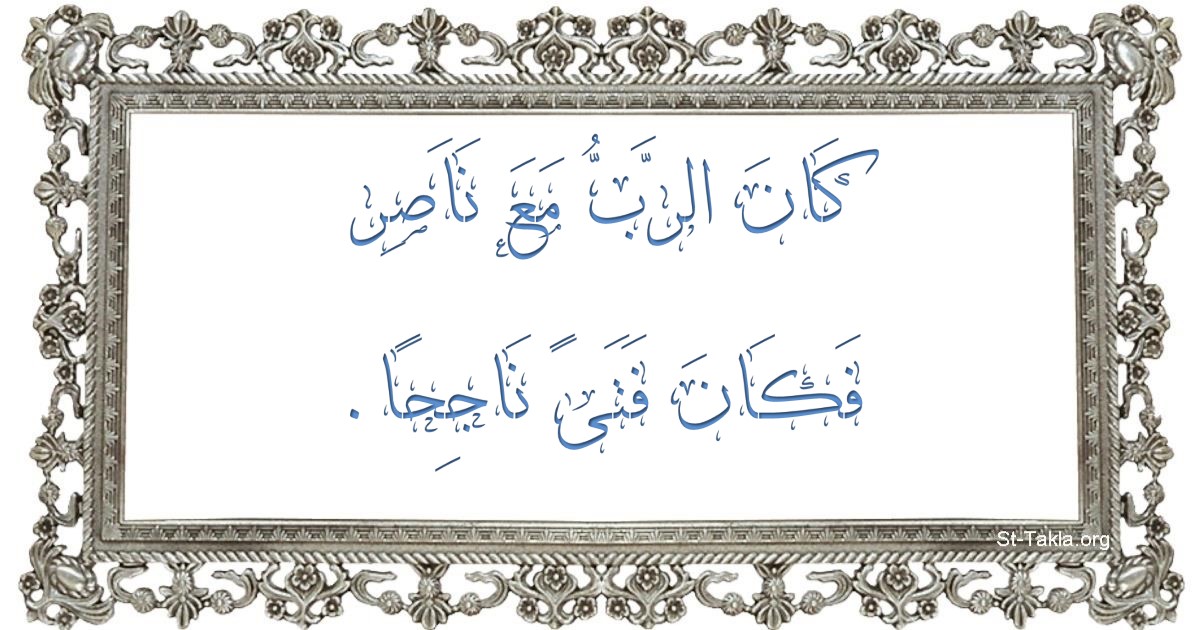 كَانَ الرَّبُّ مَعَ نَاَصِر
فَكَانَ فَتَىً نَاجِحًا .
St-Takla.org